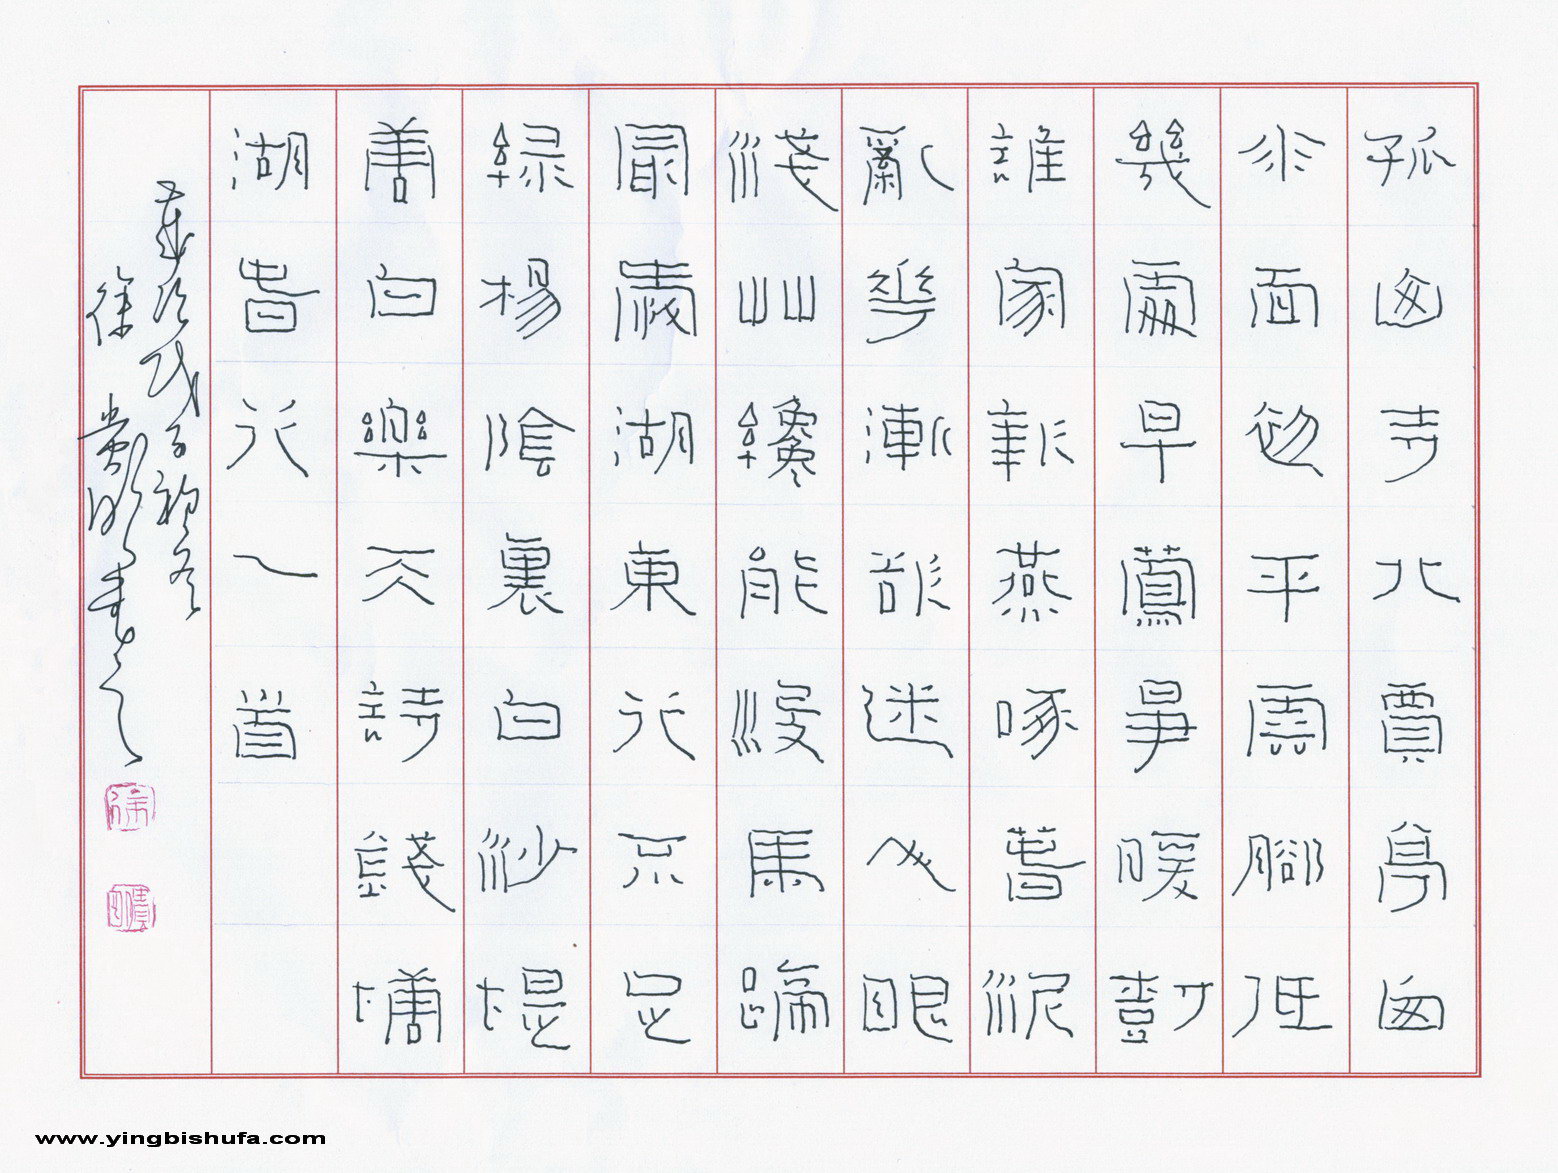 孤山寺北賈亭西
水面初平雲腳低
幾處早鶯爭暖樹
誰家新燕啄春泥
亂花漸欲迷人眼
淺艸纔能沒馬蹄
最愛湖東行不足
綠楊陰裏白沙堤
唐白樂天詩錢塘
湖春行一首
歲次戊子初冬
徐
www.yingbishufa.com